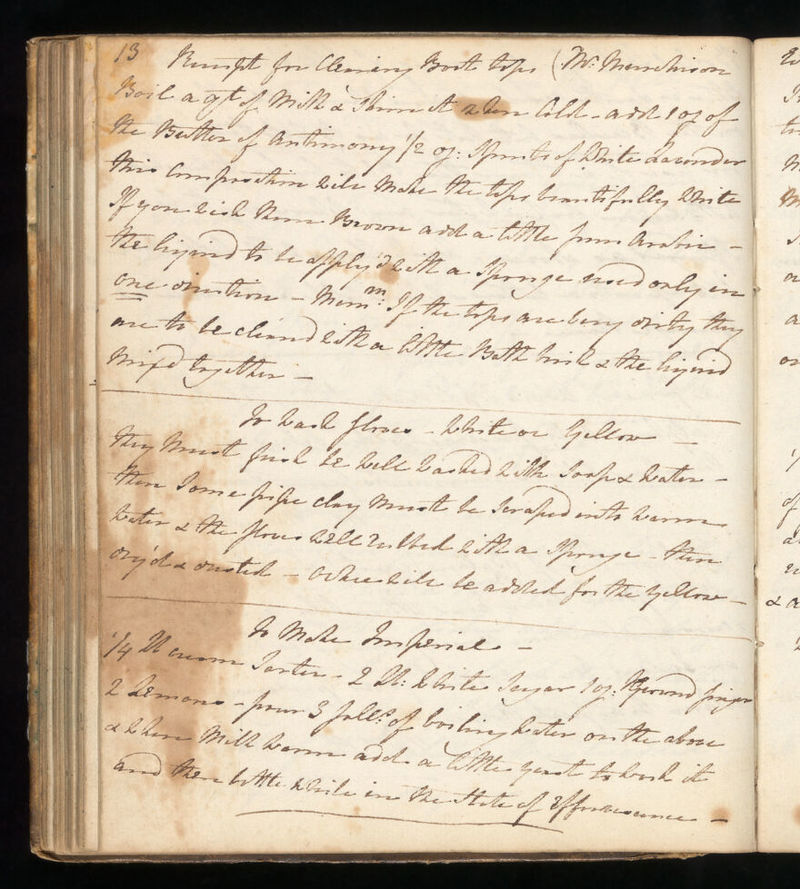 13 Receipt for Cleaning Boot tops (Mr. Murchison
Boil a qt of Milk & skim it when Cold - add 1 oz of
the Butter of Antimony 1/2 oz: Spirits of White Lavender
this Composition will make the tops beautifully white
If you wish them Brown add a little Gum Arabic -
the liquid to be apply'd with a Sponge used only in
one direction - Mem.m: If the tops are very dirty they
are to be cleaned with a little Bath brick & the liquid
mixed together -
To wash Gloves - White or Yellow -
they must first be well washed with Soap & water -
then some pipe clay must be scraped into warm
water & the Gloves well rubbed with a Sponge - then
dry'd & dusted - Ochre will be added for the Yellow -
To Make Imperial -
1/4 lb cream Tartar - 2 lb: White Sugar 1 oz: Ground ginger
2 Lemons - pour 3 galls. of boiling water on the above
& when Milk warm add a little yeast to work it
and then bottle while in the State of Effervescence -